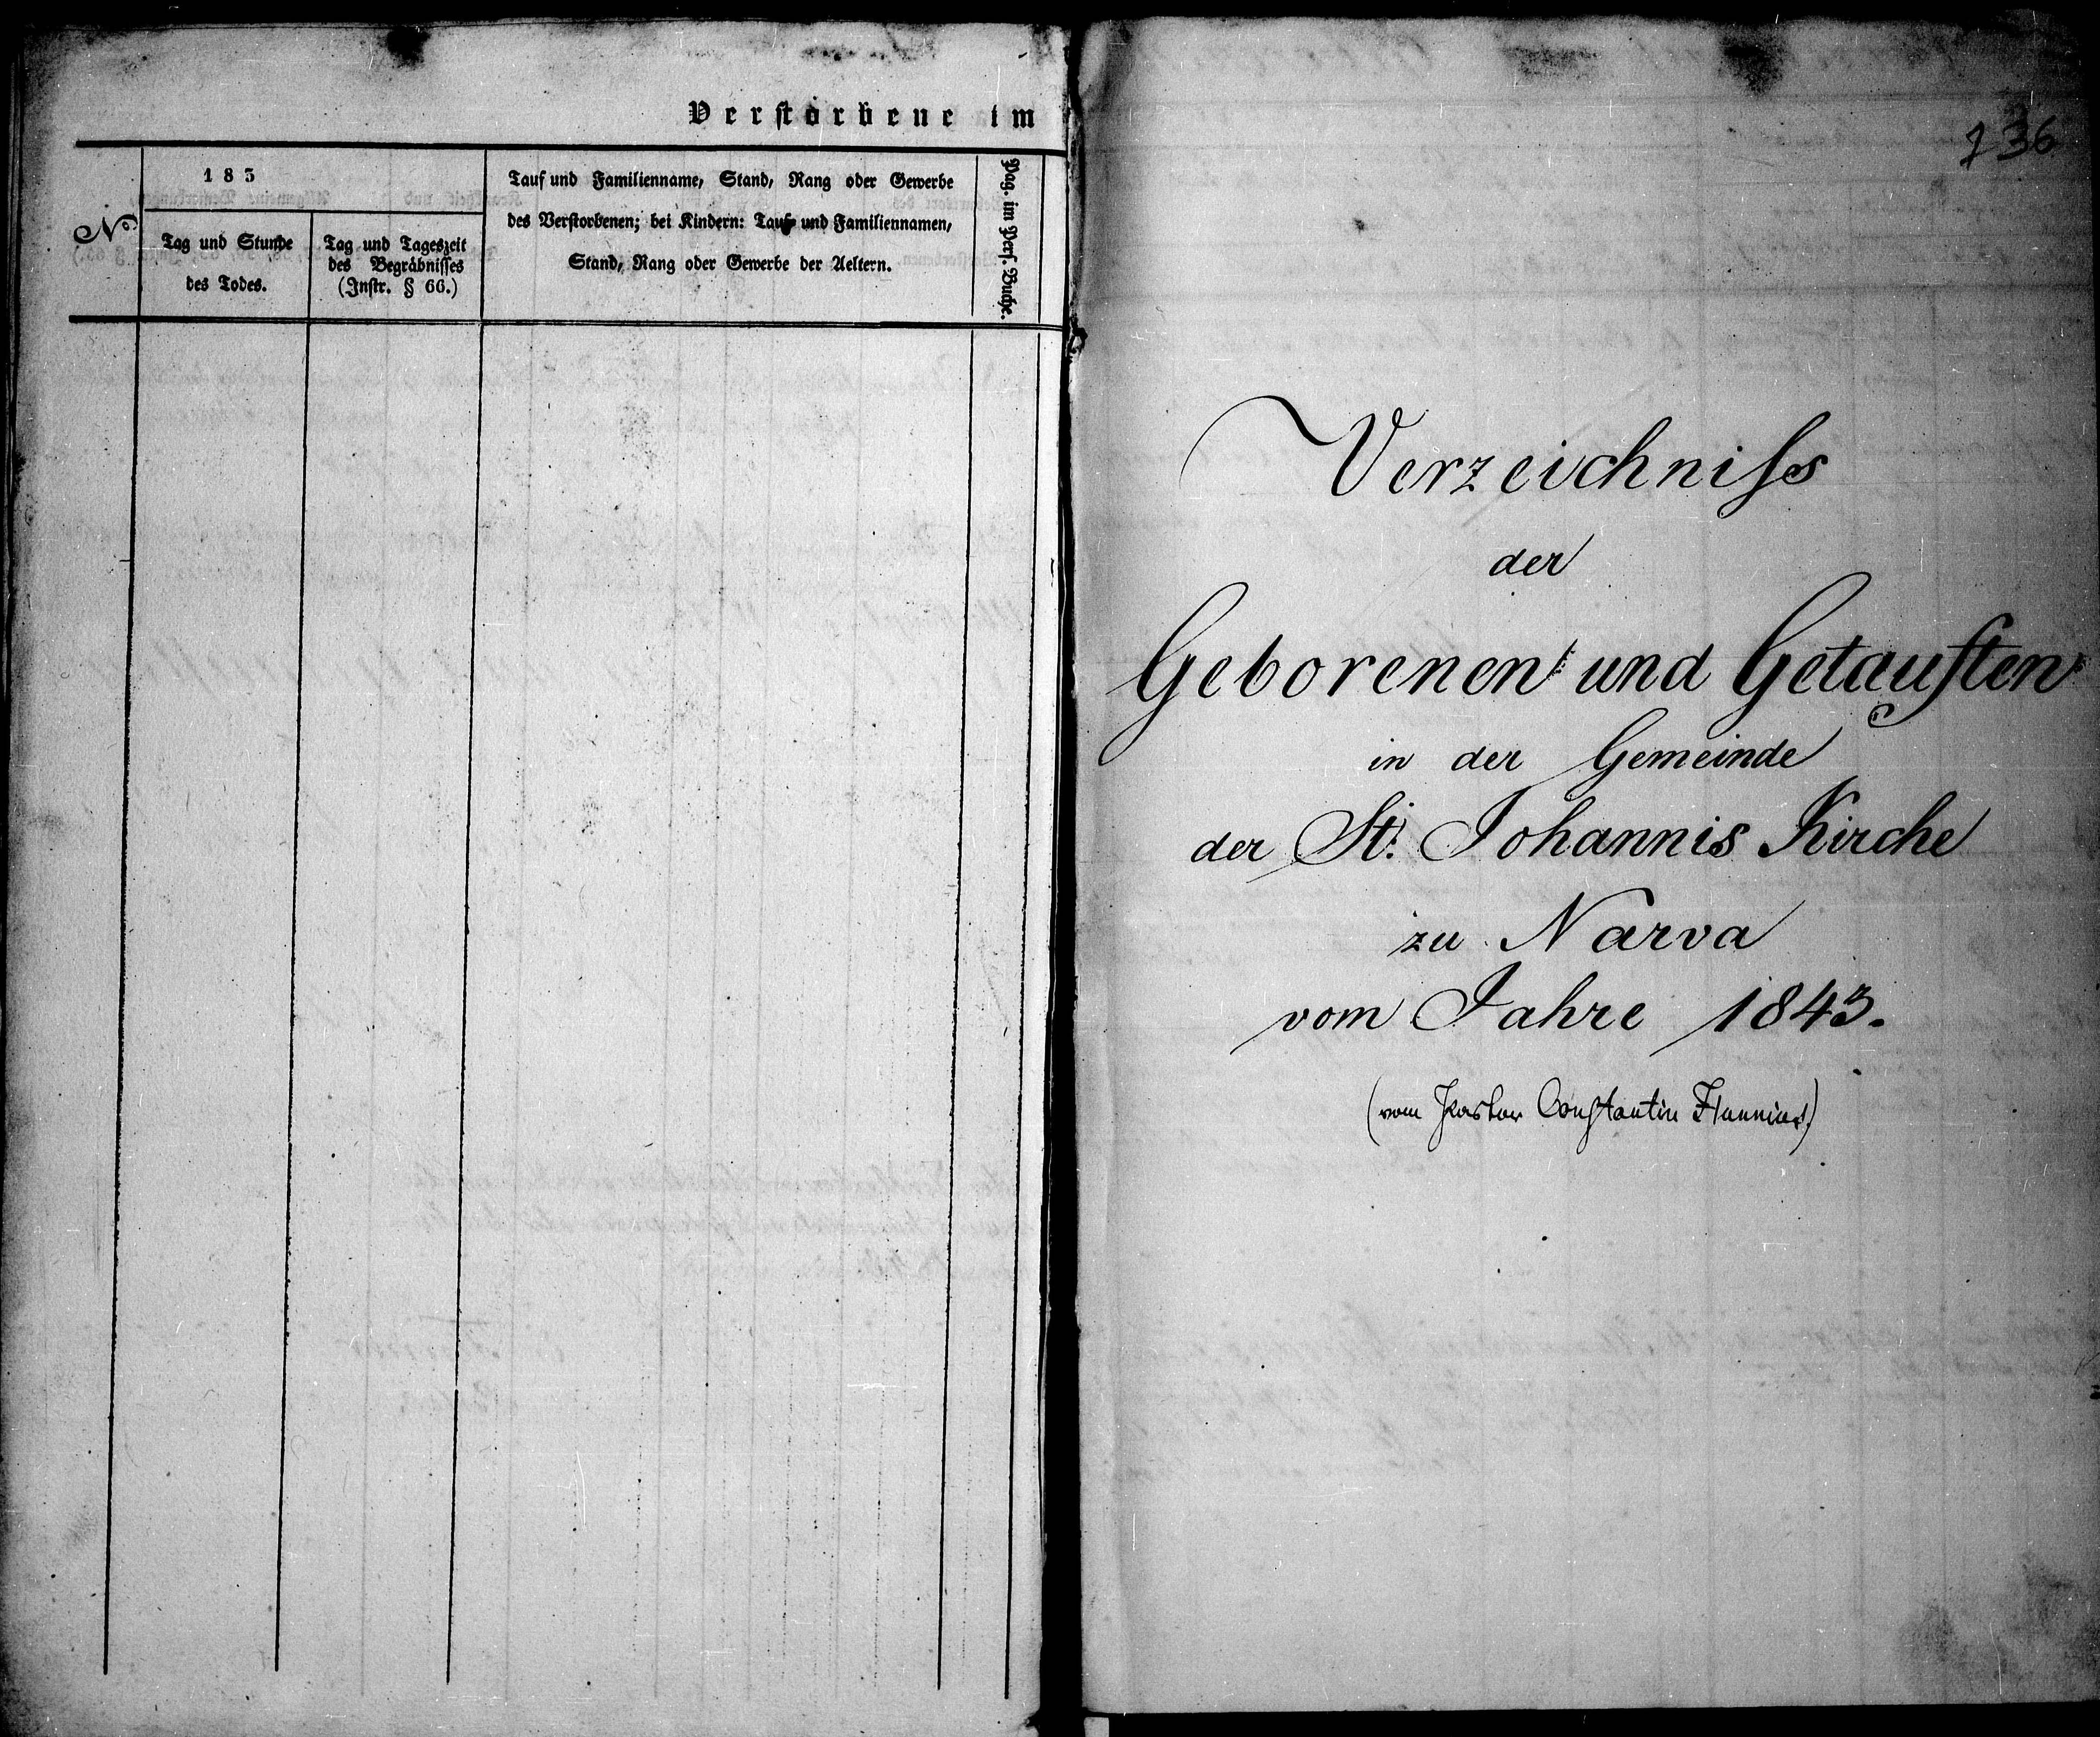 Verstorbene im
No
183
Tag und Stunde
des Todes.
Tag und Tageszeit
des Begräbnisses
(Instr. § 66.)
Tauf und Familienname, Stand, Rang oder Gewerbe
des Verstorbenen; bei Kindern: Tauf- und Familiennamen,
Stand, Rang oder Gewerbe der Aeltern.
Pag. im Pers. Buche.
136
Verzeichniss
der
Geborenen und Getauften
in der Gemeinde
der St. Johannis Kirche
zu Narva
vom Jahre 1843.
(vom Pastor Constantin Hunnius)